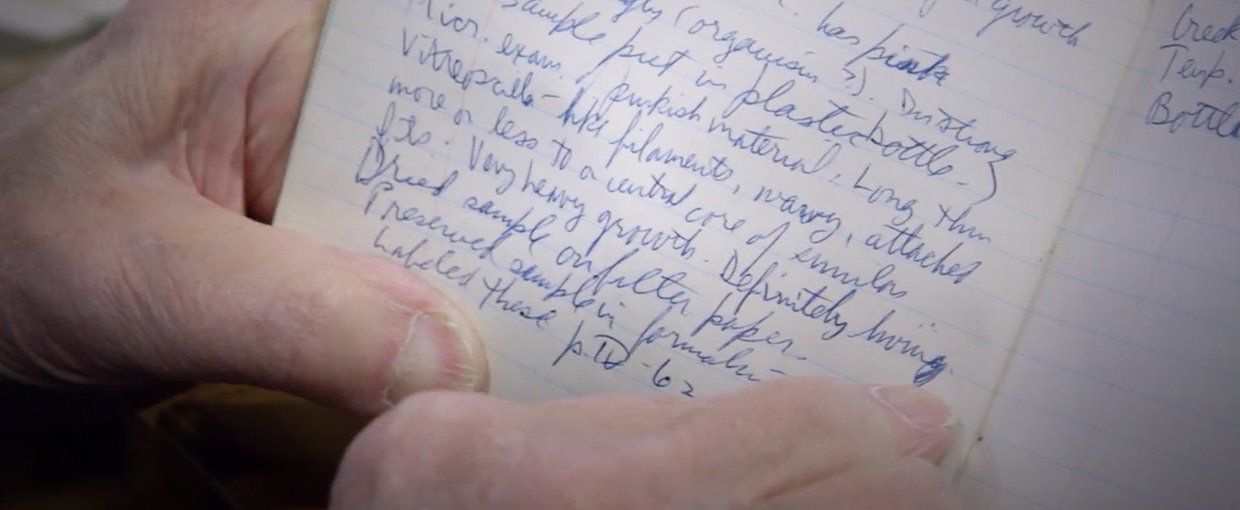 growth
has pink
(organism ?). Dristrong
sample put in plastic bottle.)
Micr. exam. Pinkish material. Long thin
Vitreoscilla-like filaments, wavy, attached
more or less to a central core of similar
fils. Very heavy growth. Definitely living.
Dried sample on filter paper.
Preserved sample in formalin-
labeled these p. IV-62
Creek
Temp.
Bottle